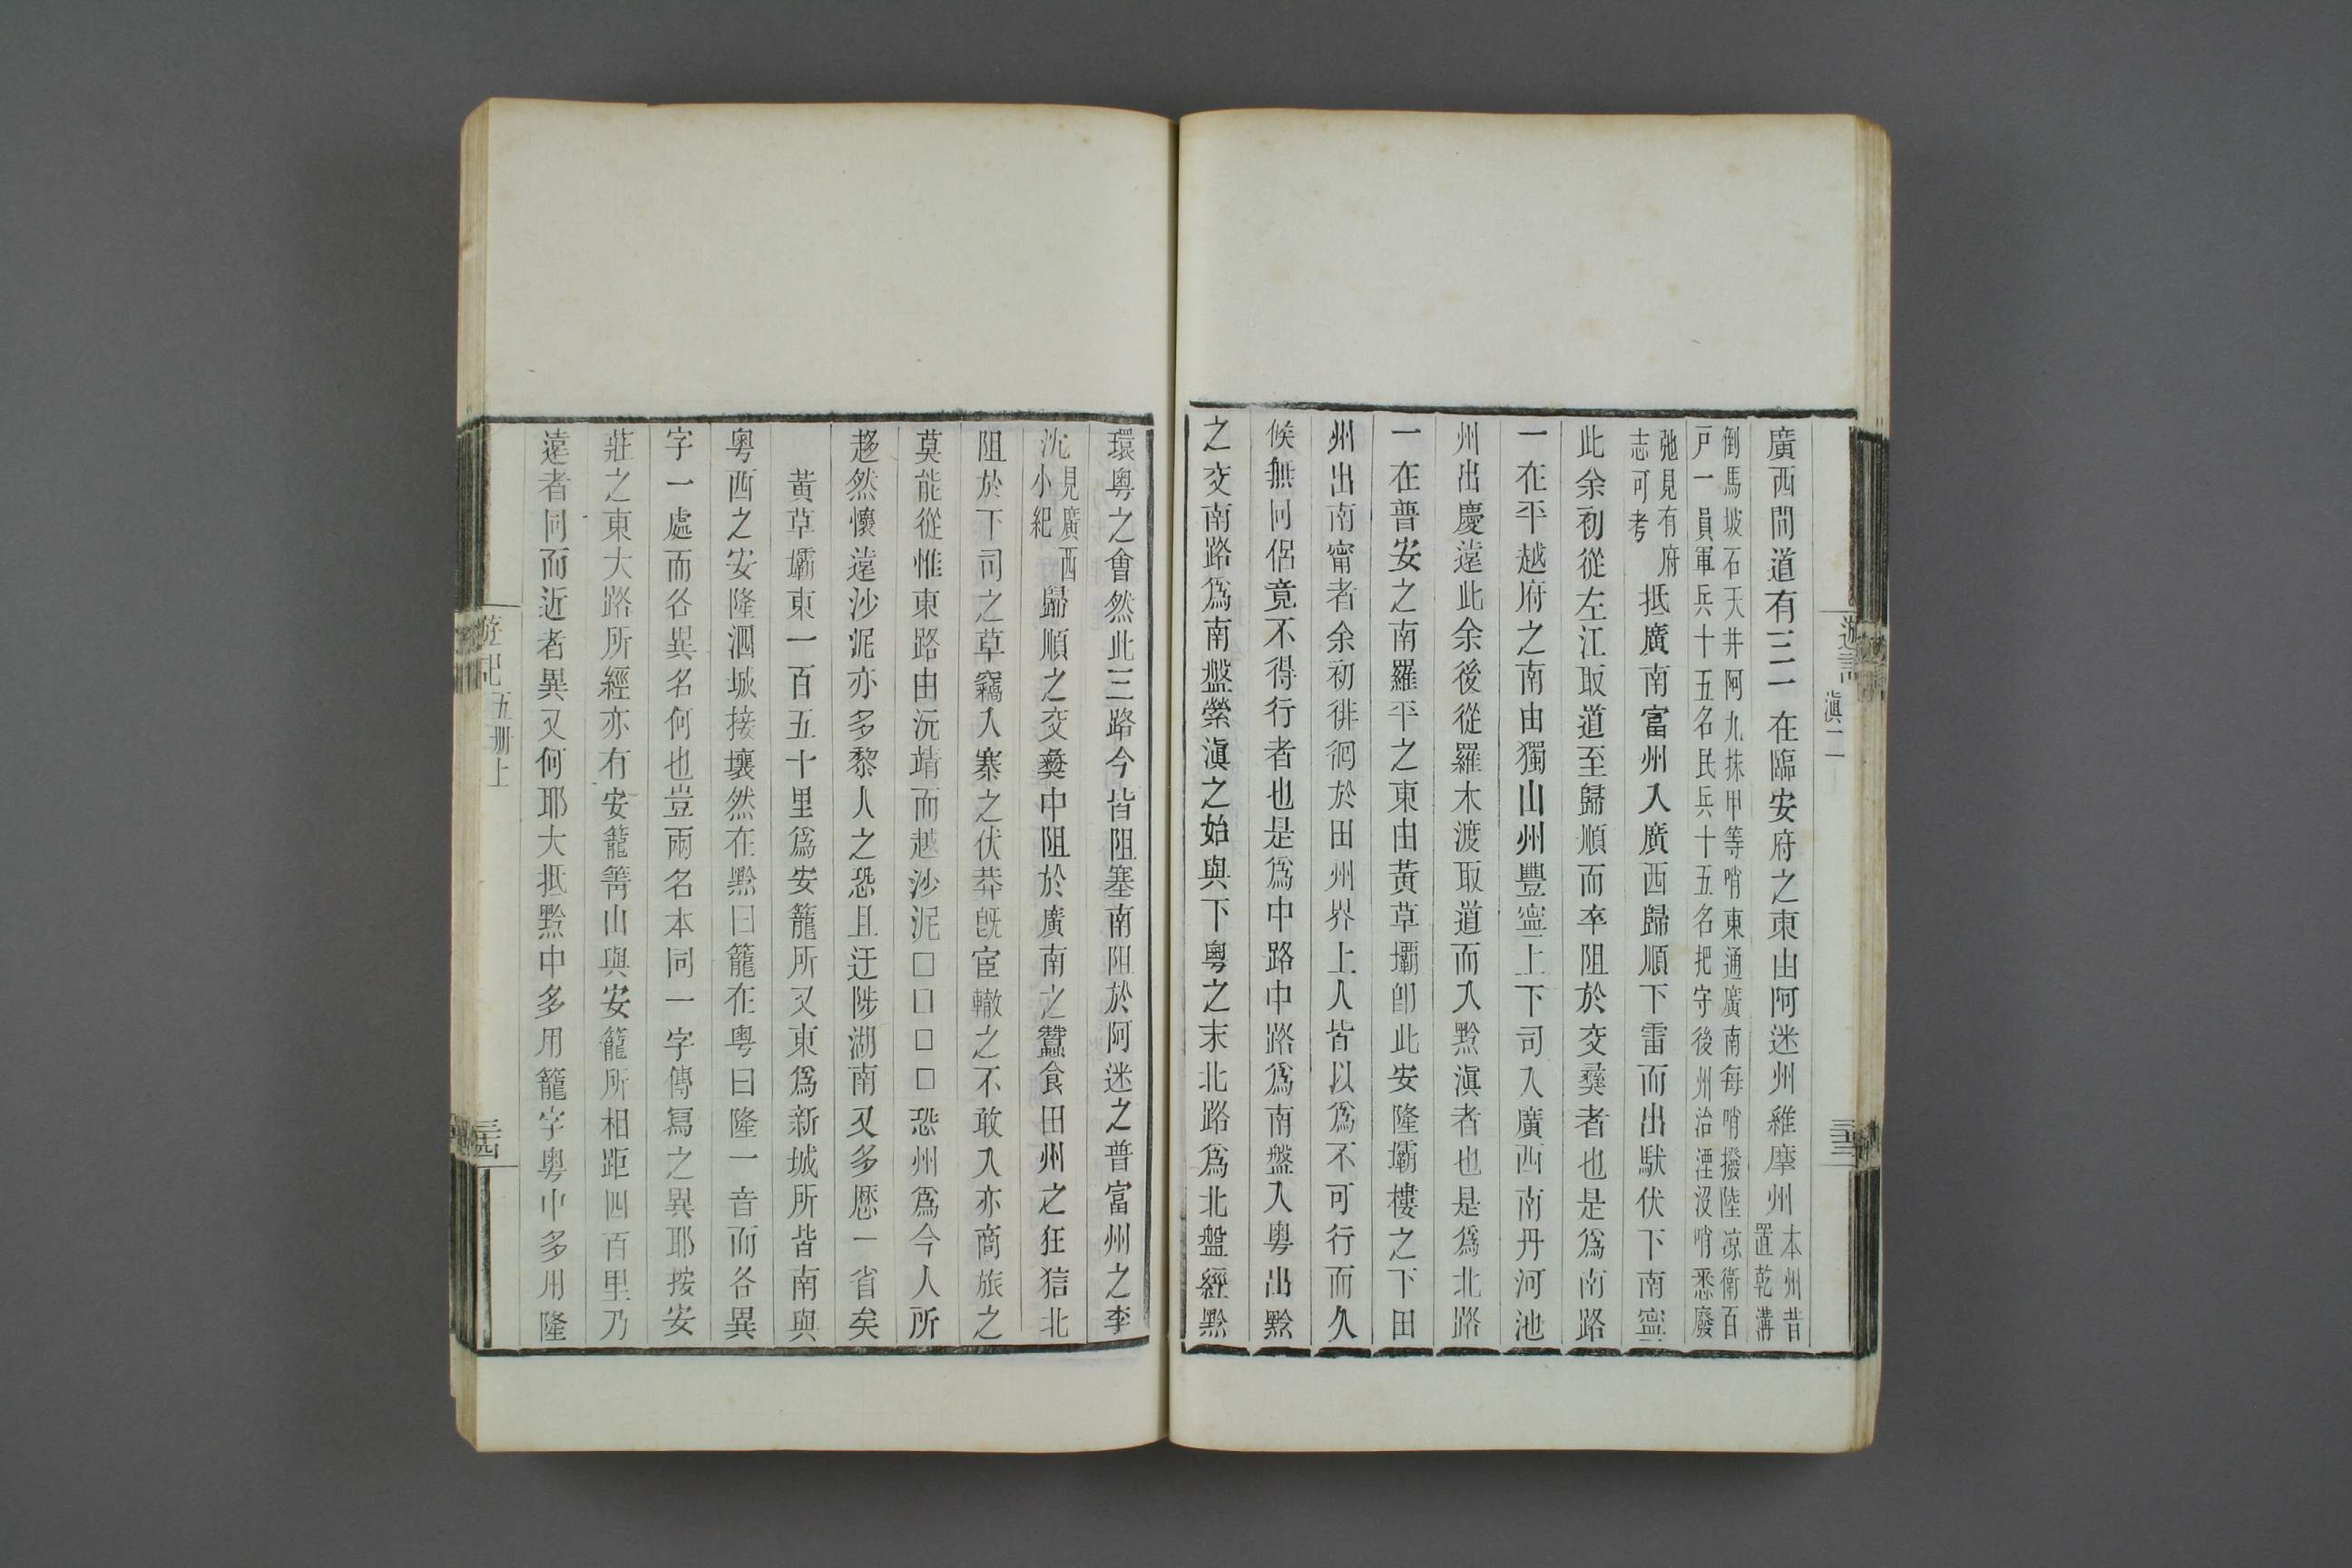 遊記
滇二
三十三
廣西間道有三一在臨安府之東由阿迷州維摩州本州昔置乾溝
倒馬坡石天井阿九抹甲等哨東通廣南每哨撥陸凉衛百
戸一員軍兵十五名民兵十五名把守後州治湮沒哨悉廢
弛見有府志可考抵廣南富州入廣西歸順下雷而出馱伏下南寧
此余初從左江取道至歸順而卒阻於交彝者也是爲南路
一在平越府之南由獨山州豐寧上下司入廣西南丹河池
州出慶遠此余後從羅木渡取道而入黔滇者也是爲北路
一在普安之南羅平之東由黃草壩卽此安隆壩樓之下田
州出南寗者余初徘徊於田州界上人皆以爲不可行而久
候無同侶竟不得行者也是爲中路中路爲南盤入粵出黔
之交南路爲南盤縈滇之始與下粵之末北路爲北盤經黔
環粵之會然此三路今皆阻塞南阻於阿迷之普富州之李
沈見廣西小紀歸順之交彝中阻於廣南之蠶食田州之狂猘北
阻於下司之草竊入寨之伏莽旣宦轍之不敢入亦商旅之
莫能從惟東路由沅靖而越沙泥□□□□恐州爲今人所
趍然懷遠沙泥亦多黎人之恐且迂陟湖南又多歷一省矣
黃草壩東一百五十里爲安籠所又東爲新城所皆南與
粵西之安隆泗城接壤然在黔曰籠在粵曰隆一音而各異
字一處而各異名何也豈兩名本同一字傳寫之異耶按安
莊之東大路所經亦有安籠箐山與安籠所相距四百里乃
遠者同而近者異又何耶大抵黔中多用籠字粵中多用隆
遊記
五冊上
三十四